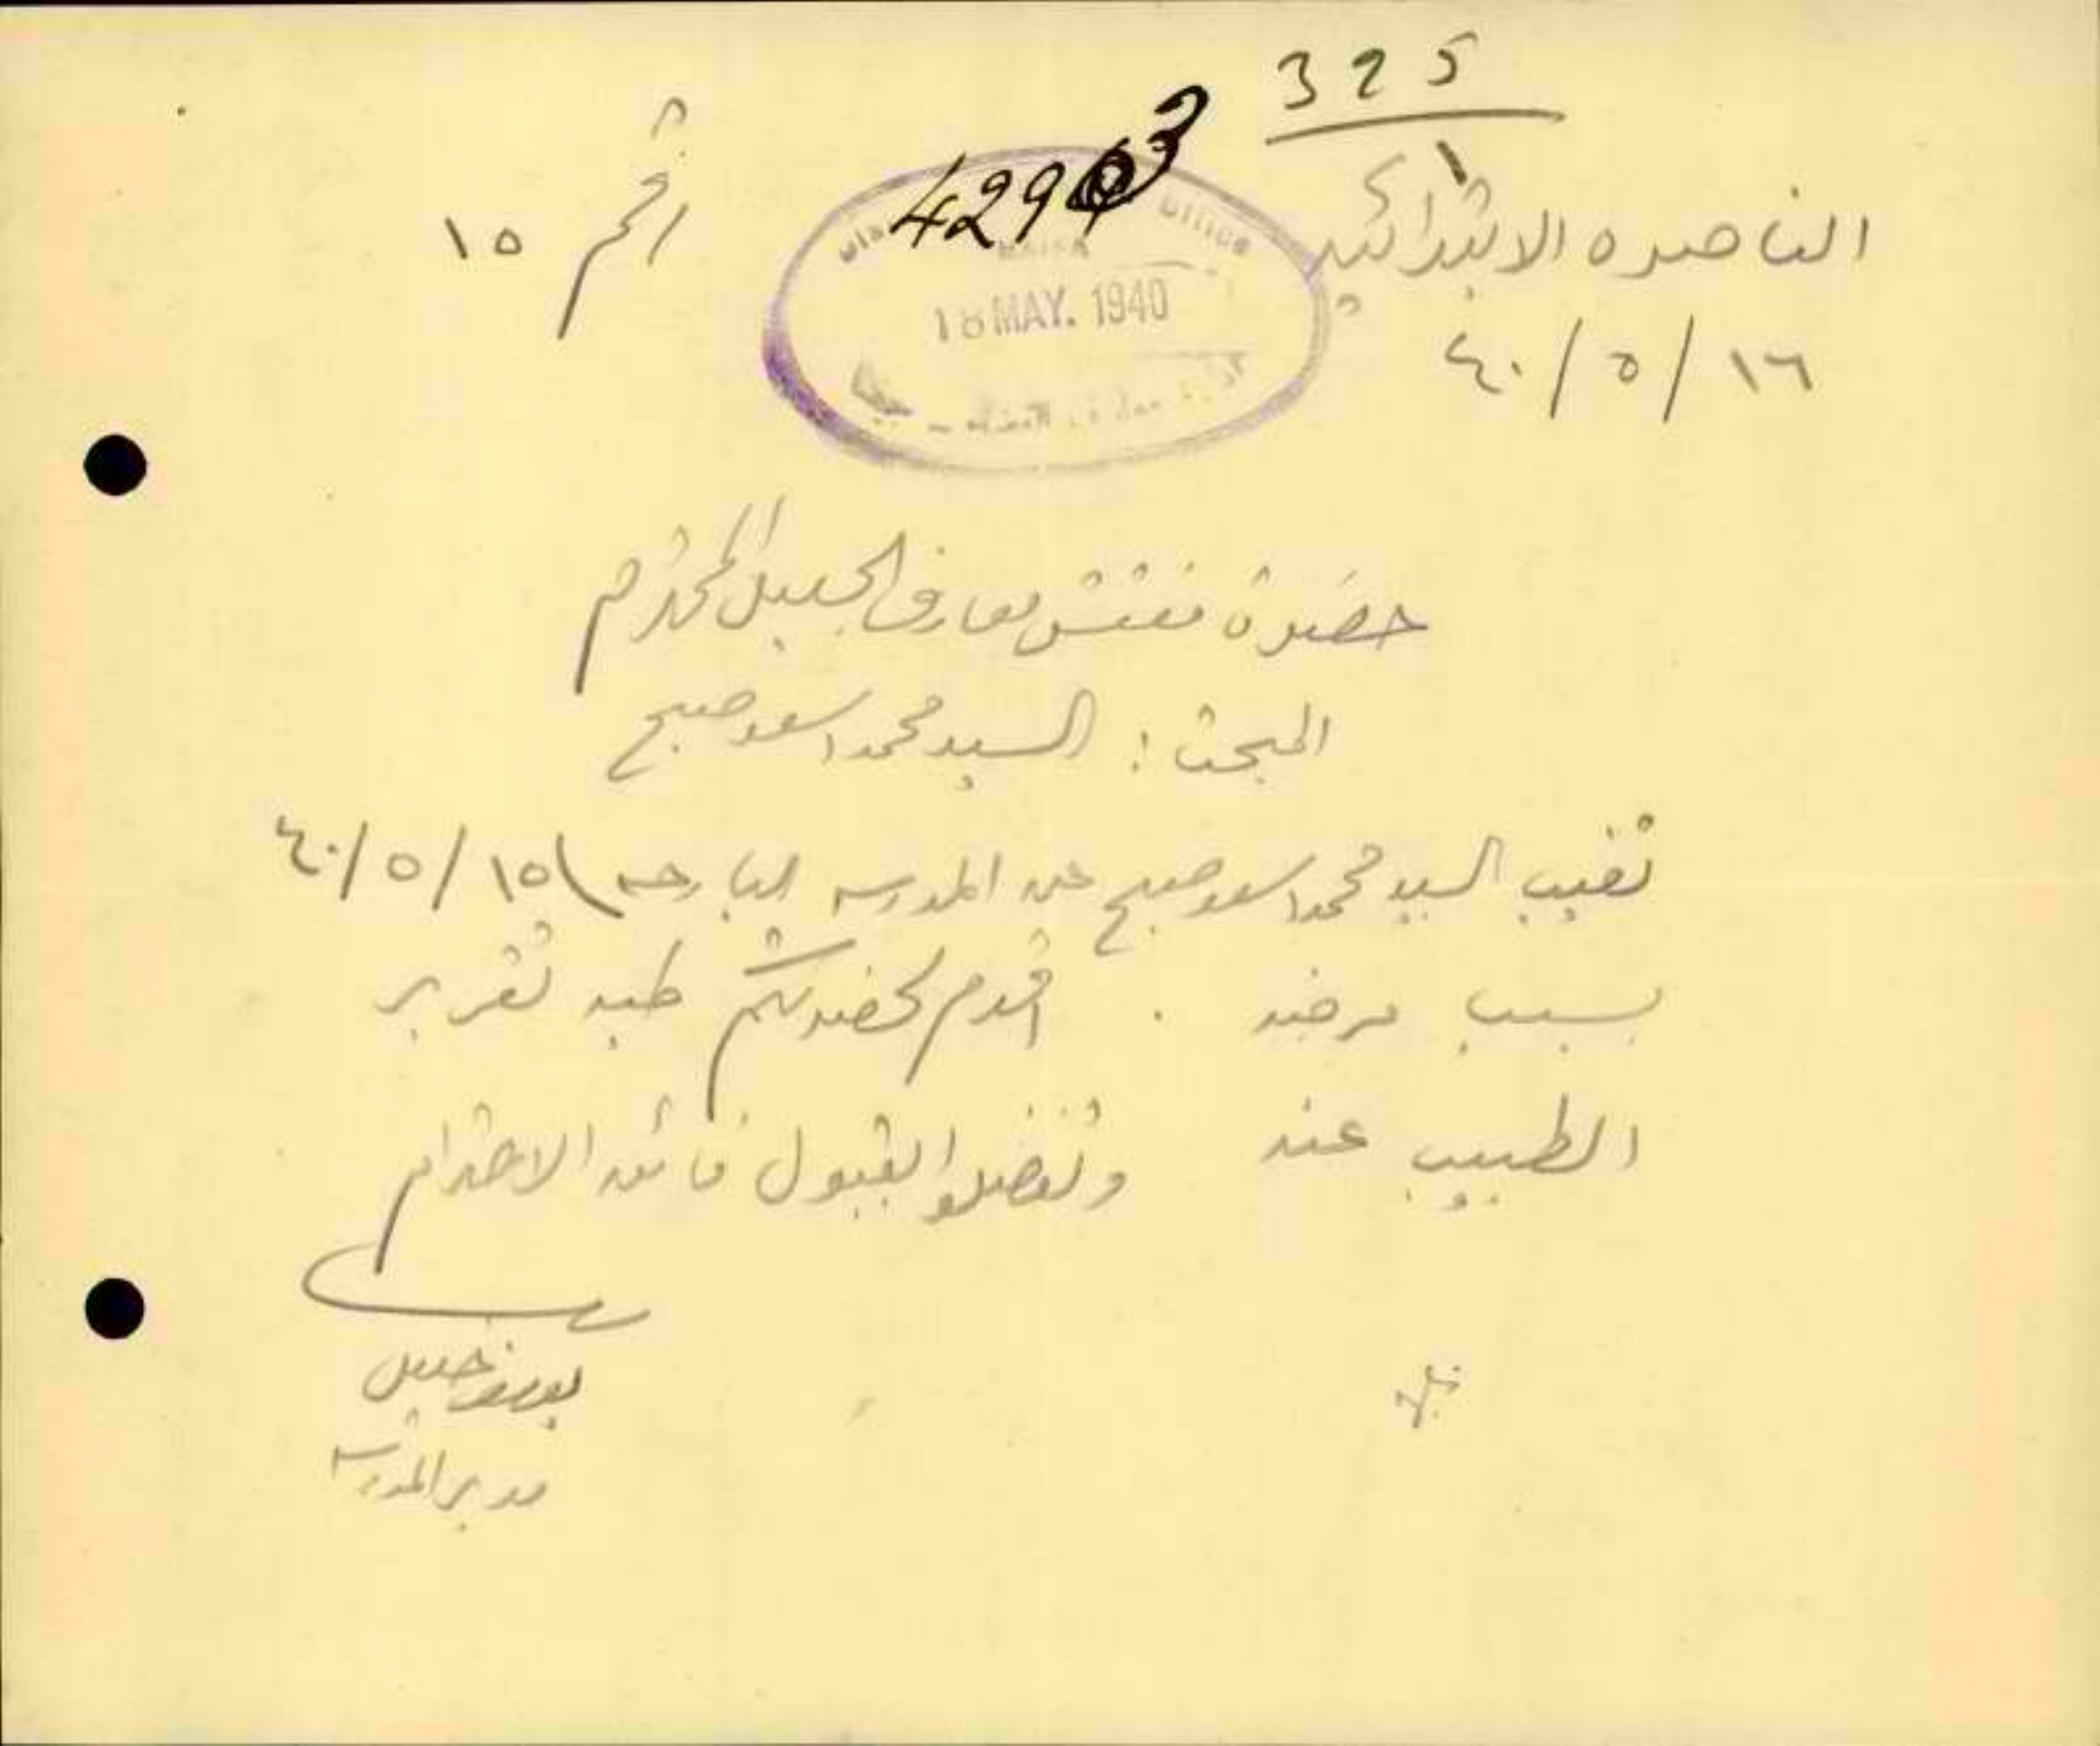 325
42903
الناصره الابتدائيه
رقم ١٥
18 MAY. 1940
١٦/٥/٤٠
حضرة مفتش معارف الجليل المحترم
المبحث: السيد محمد اسعد صبح
تغيب السيد محمد اسعد صبح عن المدرسه البارحه ١٥/٥/٤٠
بسبب مرضه. اقدم لحضرتكم طيه تقرير
الطبيب عنه وتفضلوا بقبول فائق الاحترام
خليل
مدير المدرسه